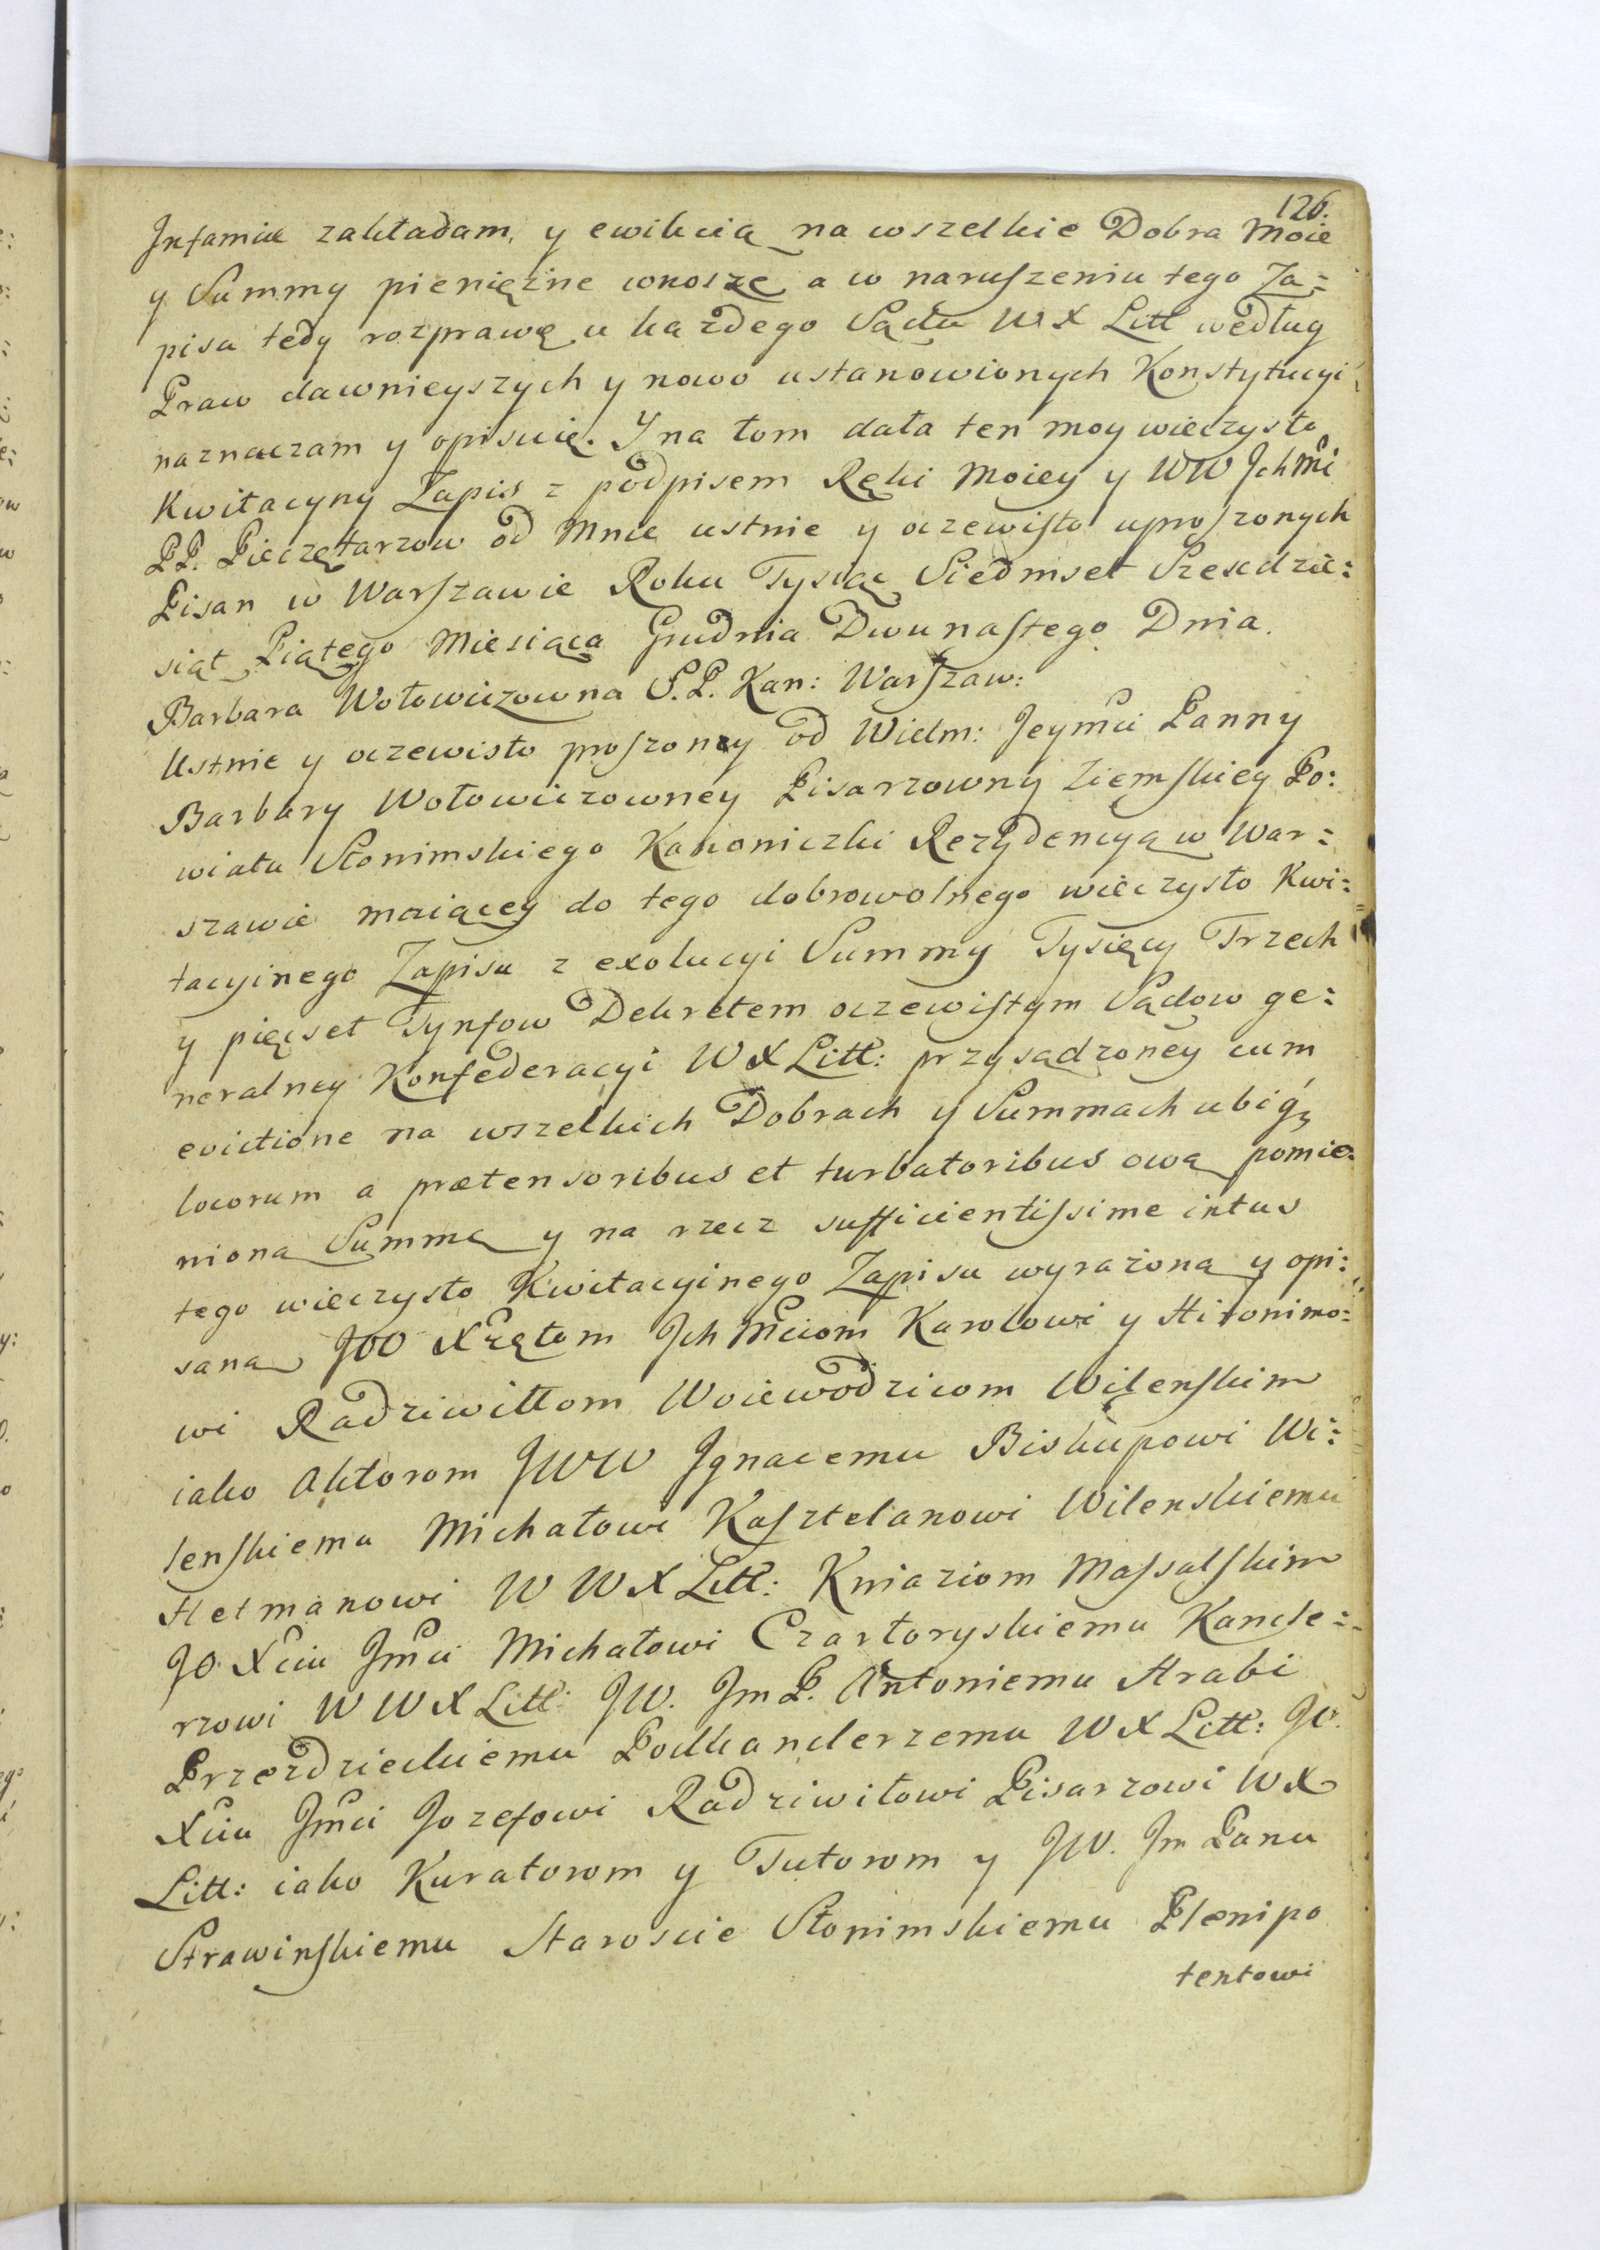 126.
Jnfamiæ zakładam, y ewikcią na wszelkie Dobra Moie
y Summy pieniężne wnoszę a w naruszeniu tego Za=
pisu tedy rozprawę u każdego Sądu W X Litt według
Praw dawnieyszych y nowo ustanowionych Konstytucyi
naznaczam y opisuię. Y na tom dała ten moy wieczysto
Kwitacyny Zapis z podpisem Ręki Moiey y WW Jchmći
PP. Pieczętarzow od Mnie ustnie y oczewisto uproszonych
Pisan w Warszawie Roku Tysiąc Siedmset Szescdzie=
siąt Piątego Miesiąca Grudnia Dwunastego Dnia.
Barbara Wołowiczowna S.P. Kan: Warszaw:
Ustnie y oczewisto proszony od Wielm: Jeymći Panny
Barbary Wołowiczowney Pisarzowny Ziemskiey Po:
wiatu Słonimskiego Kanoniczki Rezydencyą w War=
szawie maiącey do tego dobrowolnego wieczysto Kwi=
tacyinego Zapisu z exolucyi Summy Tysięcy Trzech
y pięcset Tynfow Dekretem oczewistym Sądow ge=
neralney Konfederacyi W X Litt: przysądzoney cum
evictione na wszelkich Dobrach y Summach ubiq3
locorum a prætensoribus et turbatoribus ową pomie=
nioną Summę y na rzecz sufficientissime intus
tego wieczysto Kwitacyinego Zapisu wyrażoną y opi=
saną JOO Xżętom Jchmćiom Karolowi y Hironimo=
wi Radziwiłłom Woiewodzicom Wilenskim
iako Aktorom JWW Jgnacemu Biskupowi Wi=
lenskiemu Michałowi Kasztelanowi Wilenskiemu
Hetmanowi W W X Litt: Kniaziom Massalskim
JO Xćiu Jmći Michałowi Czartoryskiemu Kancle=
rzowi W W X Litt: JW. Jm P. Antoniemu Hrabi
Przezdzieckiemu Podkanclerzemu W X Litt: JO.
Xćiu Jmći Jozefowi Radziwiłowi Pisarzowi W X
Litt: iako Kuratorom y Tutorom y JW. Jm Panu
Strawinskiemu Staroscie Słonimskiemu Plenipo
tentowi